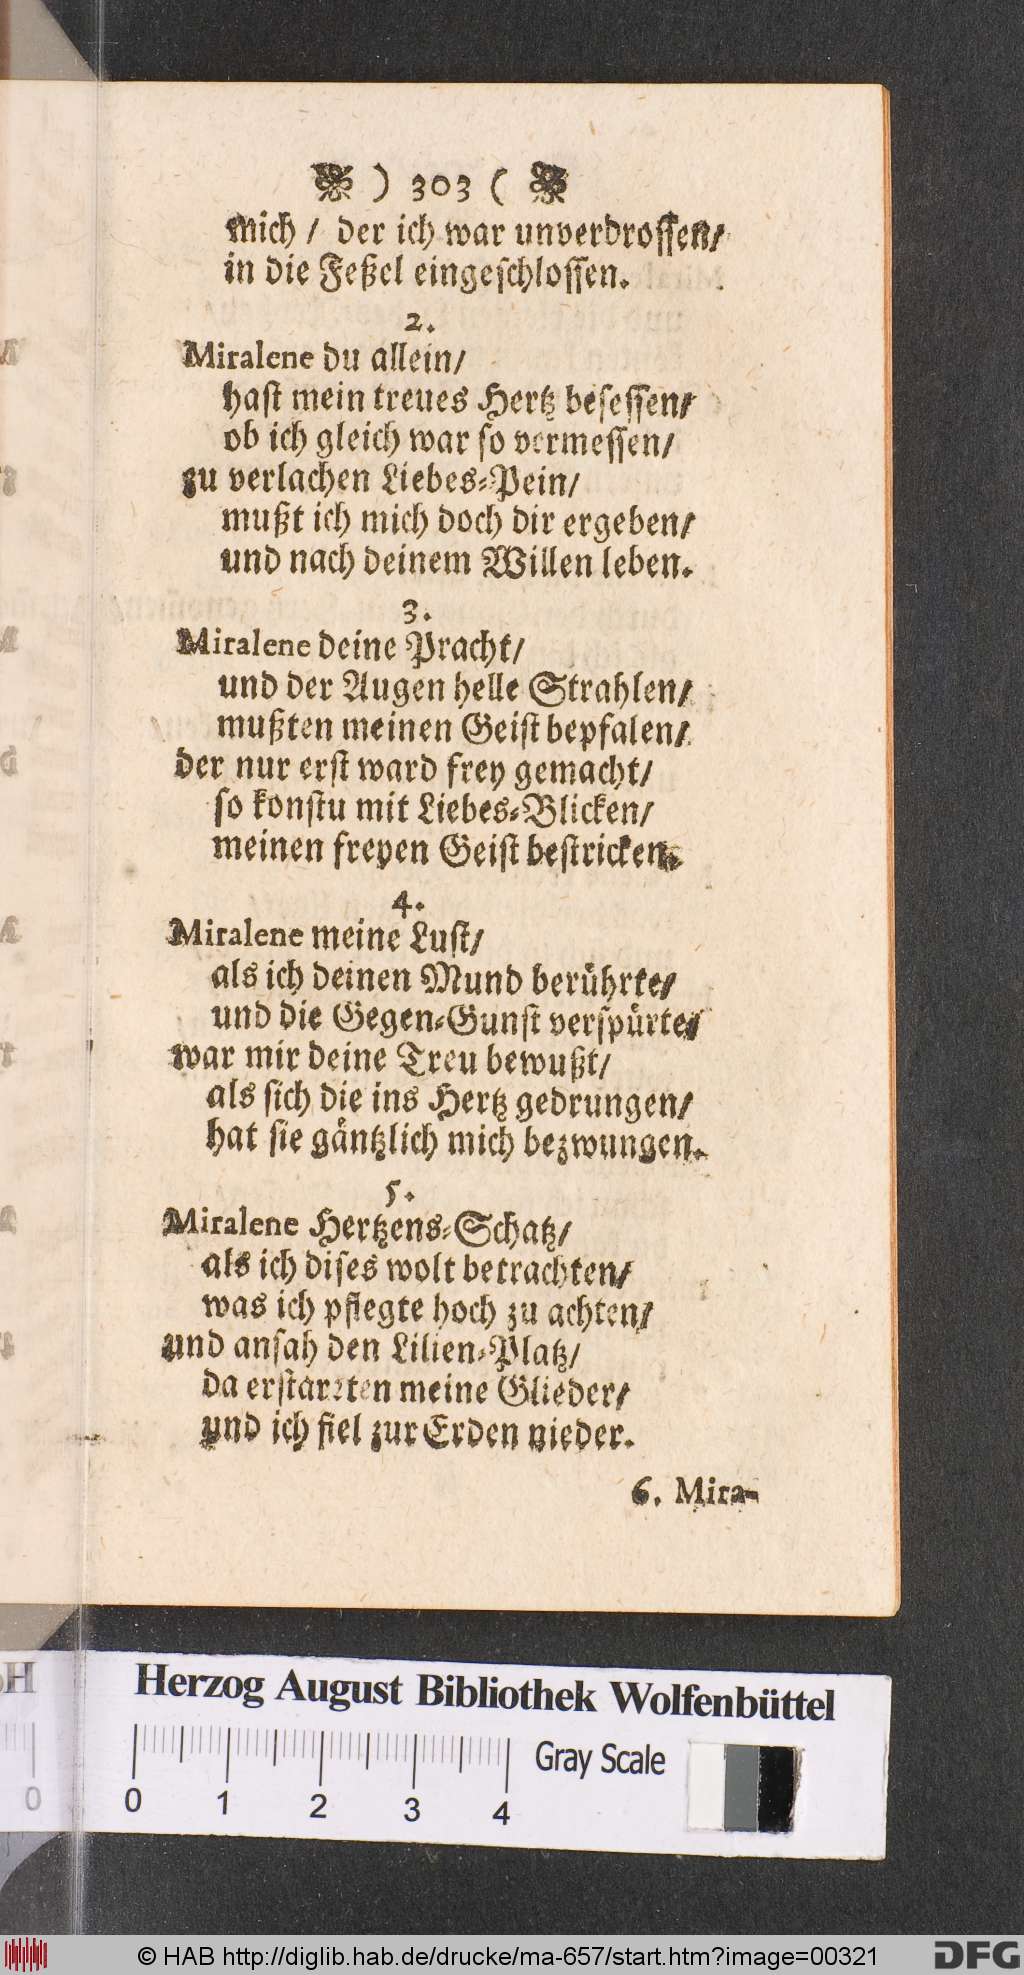 ) 303 (
mich / der ich war unverdrossen/
in die Feßel eingeschlossen.
2.
Miralene du allein/
hast mein treues Hertz besessen/
ob ich gleich war so vermessen/
zu verlachen Liebes-Pein/
mußt ich mich doch dir ergeben/
und nach deinem Willen leben.
3.
Miralene deine Pracht/
und der Augen helle Strahlen/
mußten meinen Geist bepfalen/
der nur erst ward frey gemacht/
so konstu mit Liebes-Blicken/
meinen freyen Geist bestricken.
4.
Miralene meine Lust/
als ich deinen Mund berührte/
und die Gegen-Gunst verspürte/
war mir deine Treu bewußt/
als sich die ins Hertz gedrungen/
hat sie gäntzlich mich bezwungen.
5.
Miralene Hertzens-Schatz/
als ich dises wolt betrachten/
was ich pflegte hoch zu achten/
und ansah den Lilien-Platz/
da erstarrten meine Glieder/
und ich fiel zur Erden nieder.
6. Mira-
Herzog August Bibliothek Wolfenbüttel
Gray Scale
0 1 2 3 4
© HAB http://diglib.hab.de/drucke/ma-657/start.htm?image=00321
DFG